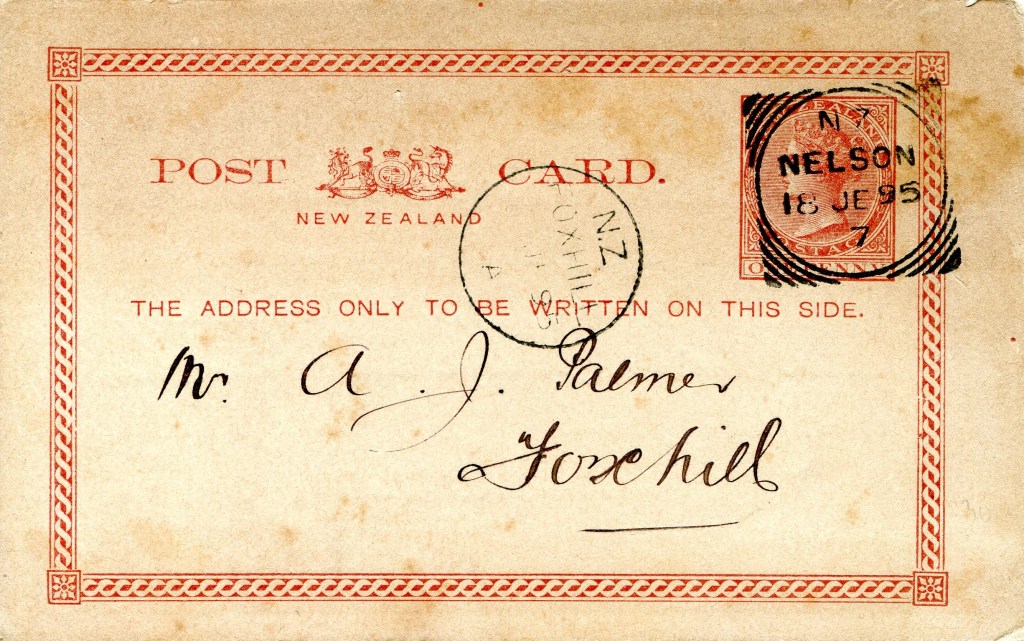 POST CARD.
NEW ZEALAND
ZEALAND
POSTAGE
ONE PENNY
N Z
NELSON
18 JE 95
7
N.Z
FOXHILL
95
A
THE ADDRESS ONLY TO BE WRITTEN ON THIS SIDE.
Mr. A. J. Palmer
Foxhill